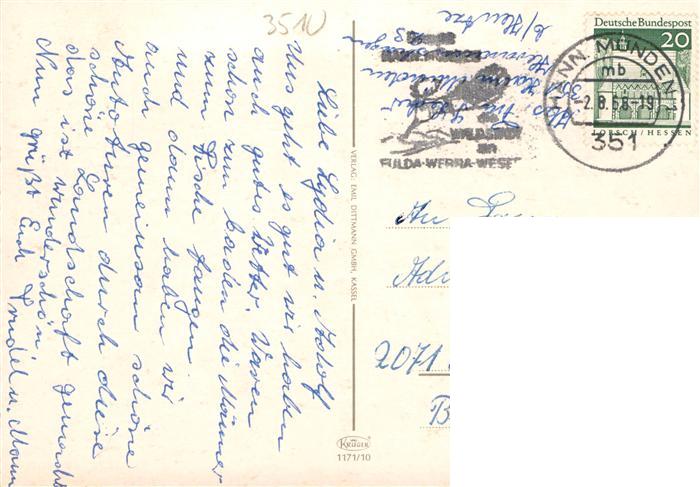 3510
Liebe Lydia u. Adolf
Uns geht es gut wir haben
auch gutes Wetter. Waren
schon zum baden die Männer
zum Fische fangen
und dann haben wir
auch gemeinsam schöne
Autoturen durch diese
schöne Landschaft gemacht
Das ist wunderschön
Nun grüßt Euch Trudel u. Mann
VERLAG: EMIL DITTMANN GMBH, KASSEL
KRÜGER
1171/10
351 Hann. Münden
b/Hentze
die
WALDSTADT
an
FULDA-WERRA-WESER
HANN. MÜNDEN
mb
-2.8.68-19
351
Deutsche Bundespost
20
LORSCH/HESSEN
An
2071
B